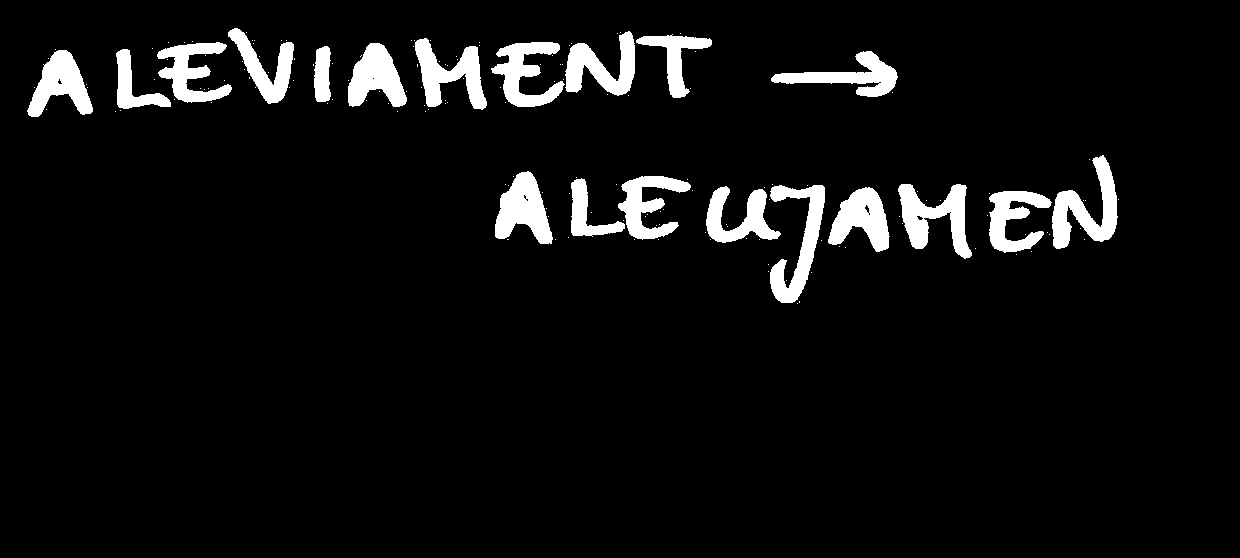 ALEVIAMENT →
ALEUJAMEN